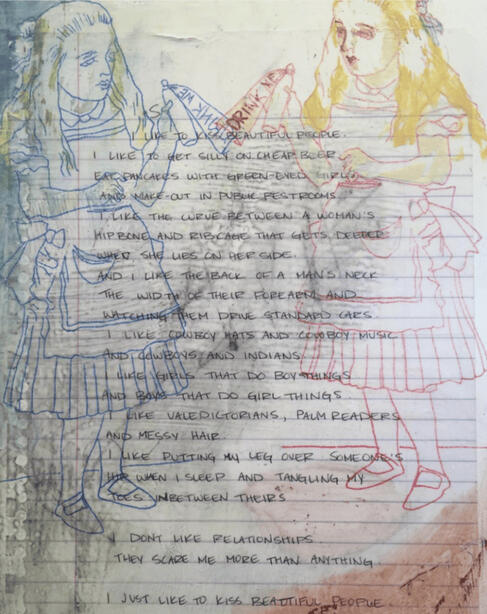 DRINK ME
DRINK ME
I LIKE TO KISS BEAUTIFUL PEOPLE.
I LIKE TO GET SILLY ON CHEAP BEER
EAT PANCAKES WITH GREEN-EYED GIRLS
AND MAKE-OUT IN PUBLIC RESTROOMS
I LIKE THE CURVE BETWEEN A WOMAN'S
HIPBONE AND RIBCAGE THAT GETS DEEPER
WHEN SHE LIES ON HER SIDE.
AND I LIKE THE BACK OF A MAN'S NECK
THE WIDTH OF THEIR FOREARM AND
WATCHING THEM DRIVE STANDARD CARS.
I LIKE COWBOY HATS AND COWBOY MUSIC
AND COWBOYS AND INDIANS.
I LIKE GIRLS THAT DO BOY THINGS
AND BOYS THAT DO GIRL THINGS.
I LIKE VALEDICTORIANS, PALM READERS
AND MESSY HAIR.
I LIKE PUTTING MY LEG OVER SOMEONE'S
HIP WHEN I SLEEP AND TANGLING MY
TOES INBETWEEN THEIRS
I DONT LIKE RELATIONSHIPS.
THEY SCARE ME MORE THAN ANYTHING.
I JUST LIKE TO KISS BEAUTIFUL PEOPLE